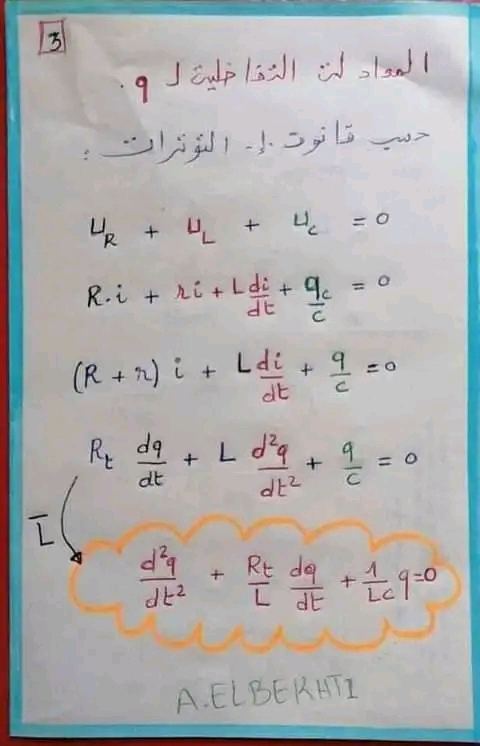 3
المعادلة التفاضلية ل q.
حسب قانون إ. التوترات :
u_R + u_L + u_c = 0
R.i + ri + L di/dt + q_c/c = 0
(R + r) i + L di/dt + q/c = 0
R_t dq/dt + L d²q/dt² + q/c = 0
L
d²q/dt² + Rt/L dq/dt + 1/Lc q=0
A.ELBEKHTI